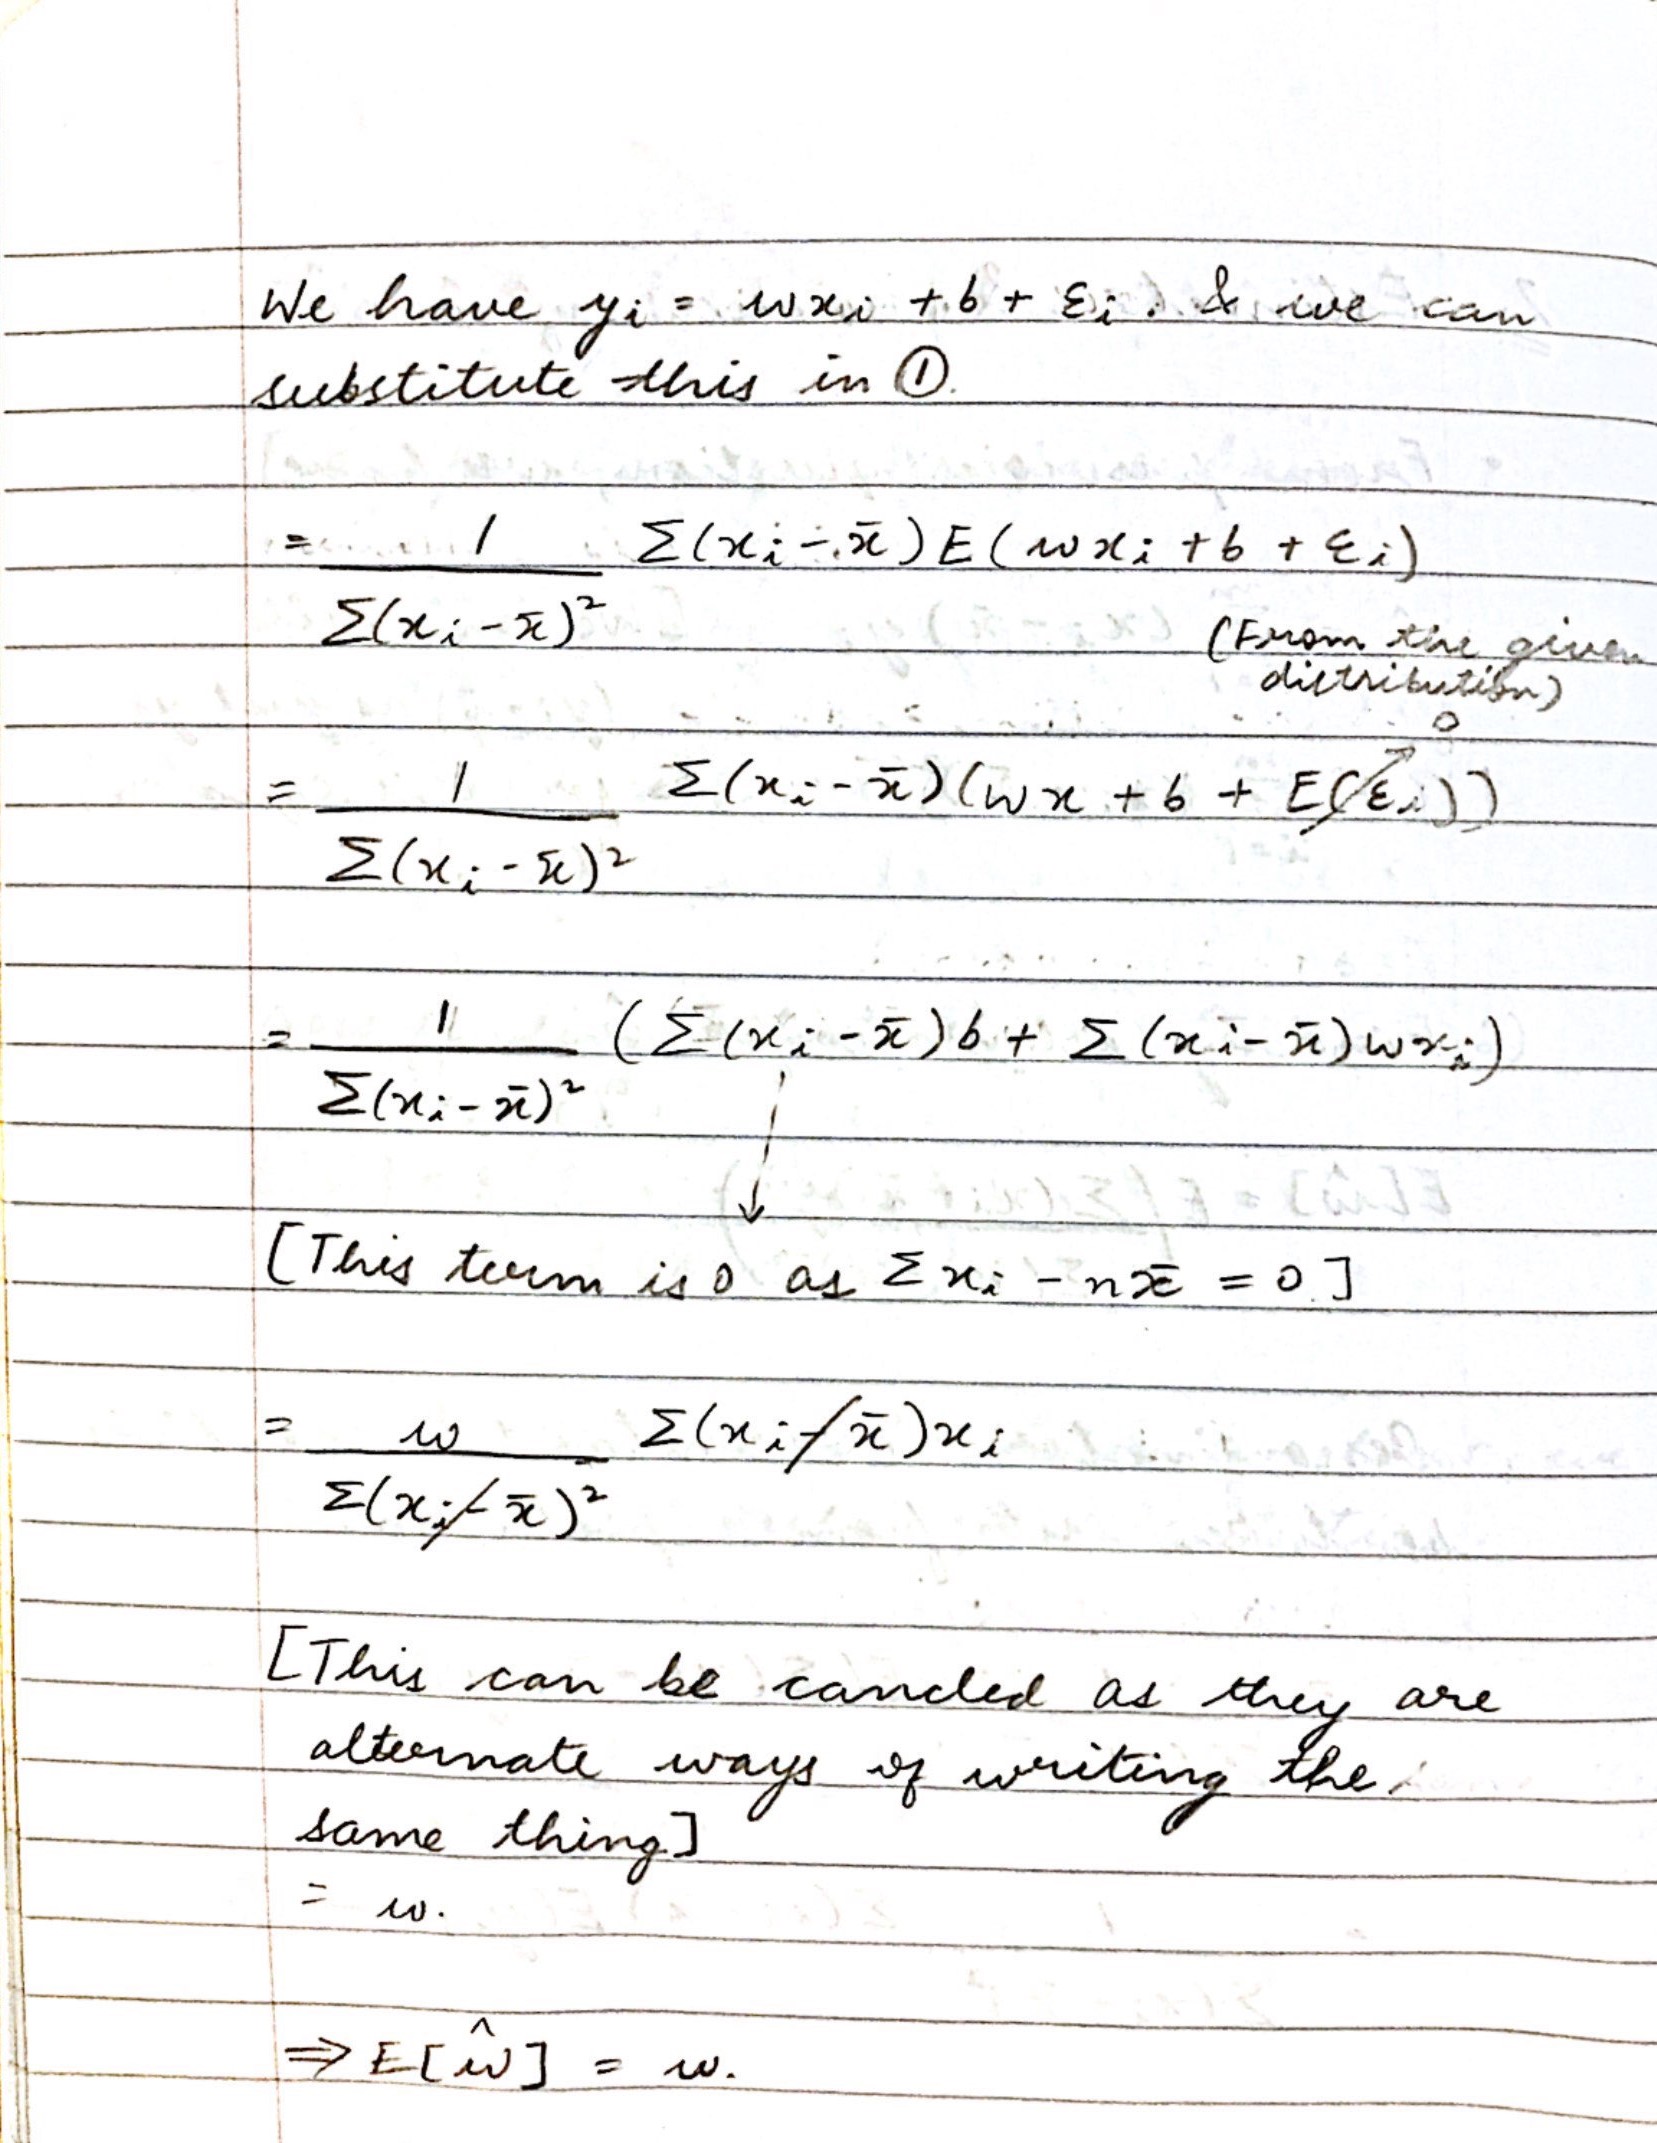 We have yᵢ = wxᵢ + b + εᵢ. & we can
substitute this in ①.
= 1/Σ(xᵢ - x̄)² Σ(xᵢ - x̄) E(wxᵢ + b + εᵢ)
(From the given
distribution)
0
= 1/Σ(xᵢ - x̄)² Σ(xᵢ - x̄)(wx + b + E(εᵢ))
= 1/Σ(xᵢ - x̄)² (Σ(xᵢ - x̄)b + Σ(xᵢ - x̄)wxᵢ)
[This term is 0 as Σxᵢ - nx̄ = 0]
= w/Σ(xᵢ - x̄)² Σ(xᵢ - x̄)xᵢ
[This can be cancled as they are
alternate ways of writing the
same thing]
= w.
⇒ E[ŵ] = w.